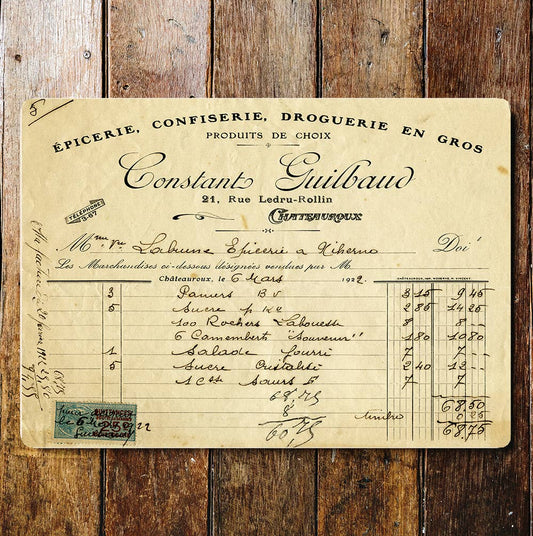 ÉPICERIE, CONFISERIE, DROGUERIE EN GROS
PRODUITS DE CHOIX
Constant Guilbaud
21, Rue Ledru-Rollin
CHATEAUROUX
TÉLÉPHONE
0-67
Mme Vve Labrune Epicerie a Niherne Doit
Les Marchandises ci-dessous désignées vendues par M.
Châteauroux, le 6 Mars 1922
CHATEAUROUX, IMP. MODERNE H. VINCENT.
3 Paniers B v 3 15 9 45
5 Sucre p Kg 2 85 14 25
100 Rochers 8 8
6 Camembert "Souvenir" 1 80 10 80
1 Salade fourré 7 7
5 Sucre Cristalisé 2 40 12
1 7 7
68,75
8
60,75
timbre
68,50
0 25
68,75